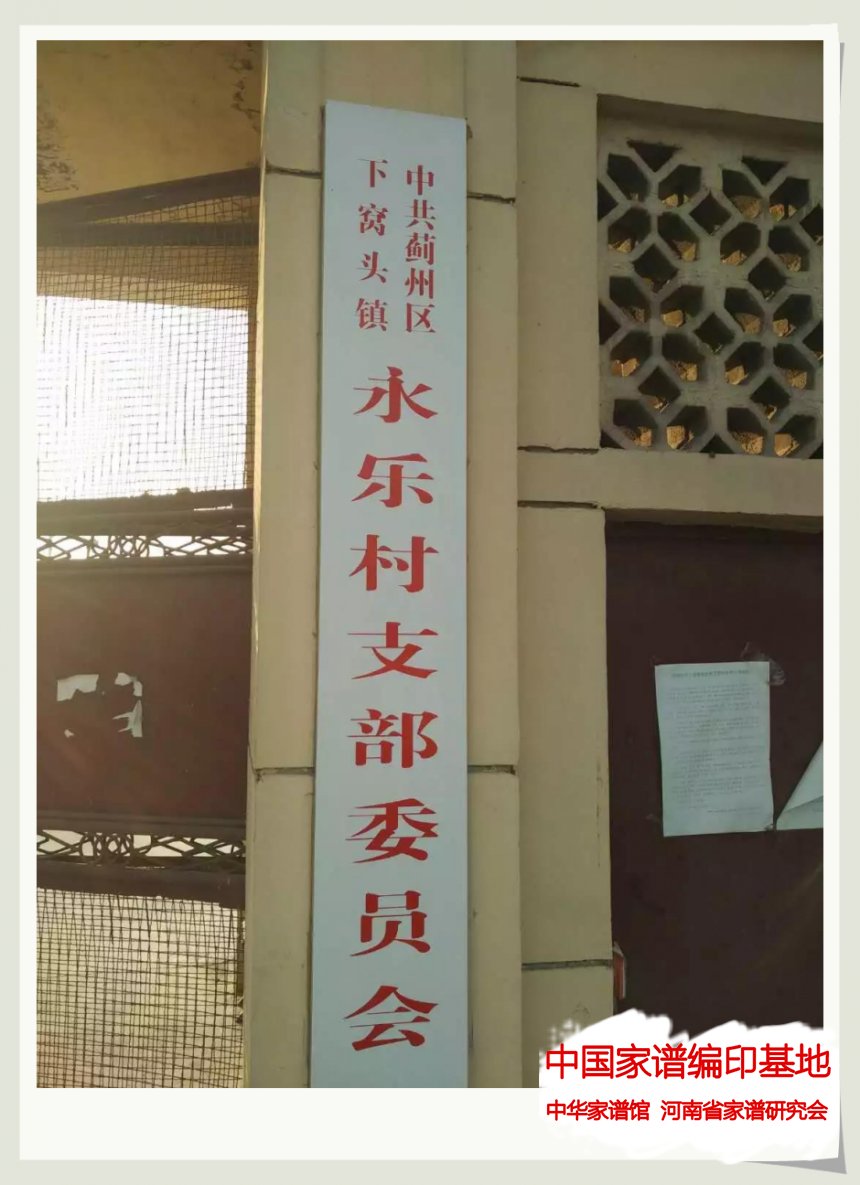 中共蓟州区
下窝头镇
永乐村支部委员会
中国家谱编印基地
中华家谱馆 河南省家谱研究会